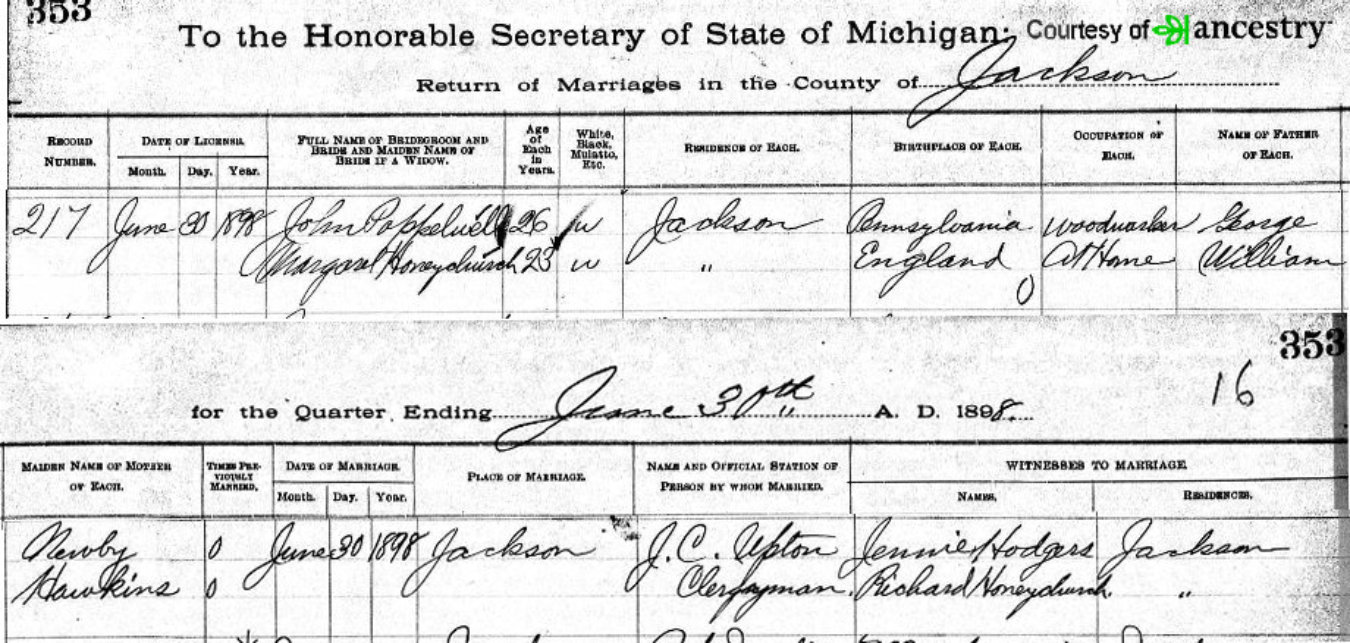 353
To the Honorable Secretary of State of Michigan: Courtesy of ancestry
Return of Marriages in the County of Jackson
RECORD NUMBER. DATE OF LICENSE. Month. Day. Year. FULL NAME OF BRIDEGROOM AND BRIDE AND MAIDEN NAME OF BRIDE IF A WIDOW. Age of Each in Years. White, Black, Mulatto, Etc. RESIDENCE OF EACH. BIRTHPLACE OF EACH. OCCUPATION OF EACH. NAME OF FATHER OF EACH.
217 June 30 1898 John Poppelwell 26 W Jackson Pennsylvania Woodworker George
Margaret Honeychurch 23 W " England At Home William
353
16
for the Quarter Ending June 30th A. D. 1898.
MAIDEN NAME OF MOTHER OF EACH. TIMES PREVIOUSLY MARRIED. DATE OF MARRIAGE. Month. Day. Year. PLACE OF MARRIAGE. NAME AND OFFICIAL STATION OF PERSON BY WHOM MARRIED. WITNESSES TO MARRIAGE. NAMES. RESIDENCES.
Newby 0 June 30 1898 Jackson J. C. Upton Jennie Hodgers Jackson
Hawkins 0 Clergyman. Richard Honeychurch. "